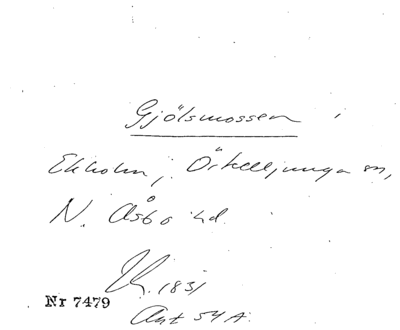 Gjölsmossen i
Ekholm, Örkelljunga sn,
N. Åsbo hd.
R. 1831
Nr 7479
Akt 54A.